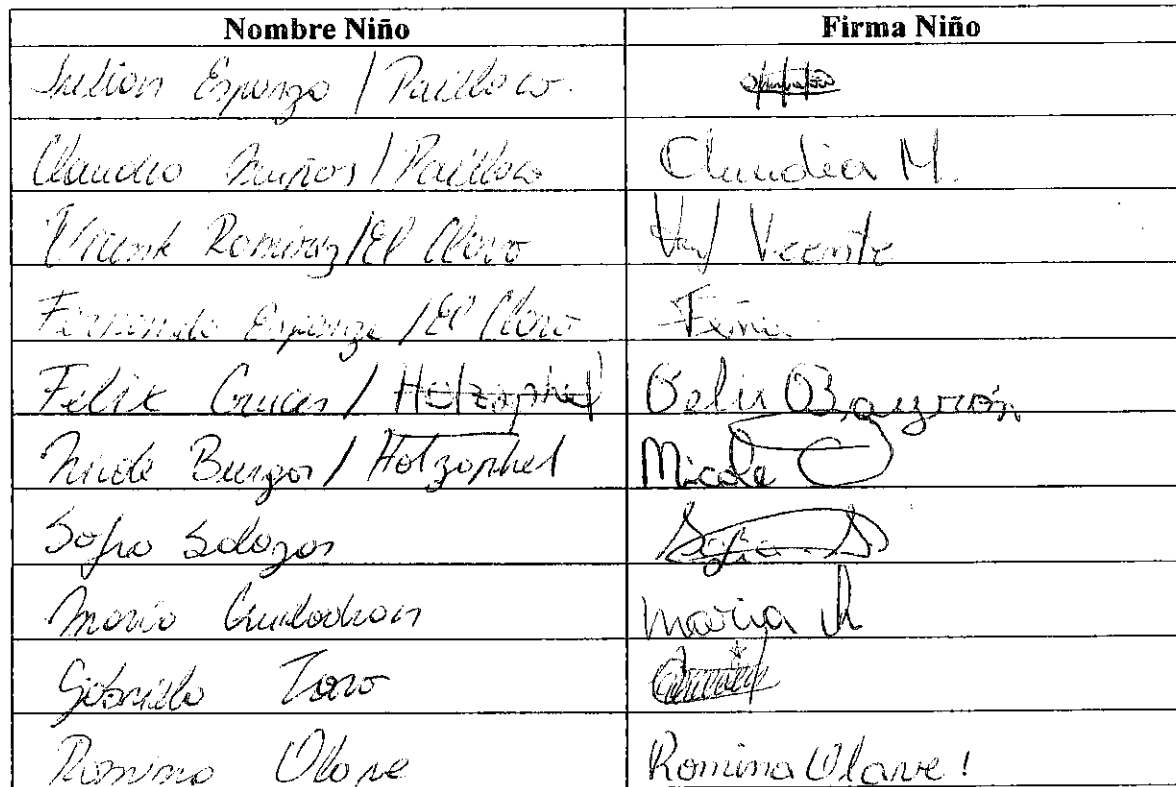 Nombre Niño Firma Niño
Julian Esparza / Pailloco.
Claudia Muños / Pailloco Claudia M.
Vicente Ramirez / El Claro Vicente
Fernanda Esparza / El Claro Feña
Felix Cruces / Holzaphel Felix Bayron
Nicole Burgos / Holzaphel Nicole
Sofia Salazar Sofia S
Maria Maria
Gabriella Toro
Romina Olave Romina Olave!